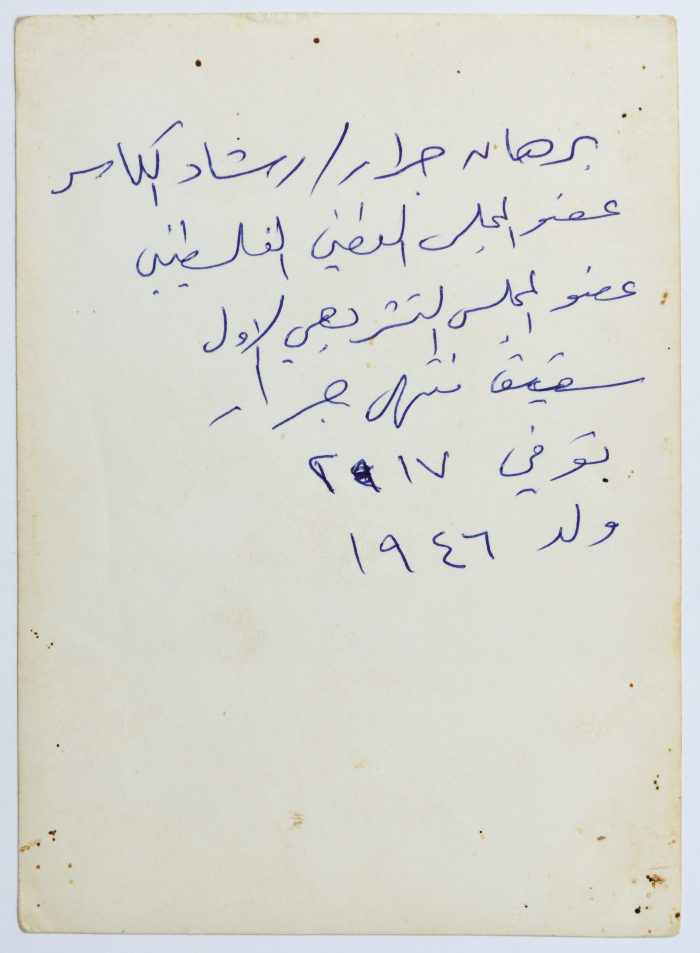 برهان جرار / رشاد الكاسر
عضو المجلس الوطني الفلسطيني
عضو المجلس التشريعي الاول
شقيق جرار
توفي ٢٠١٧
ولد ١٩٤٦